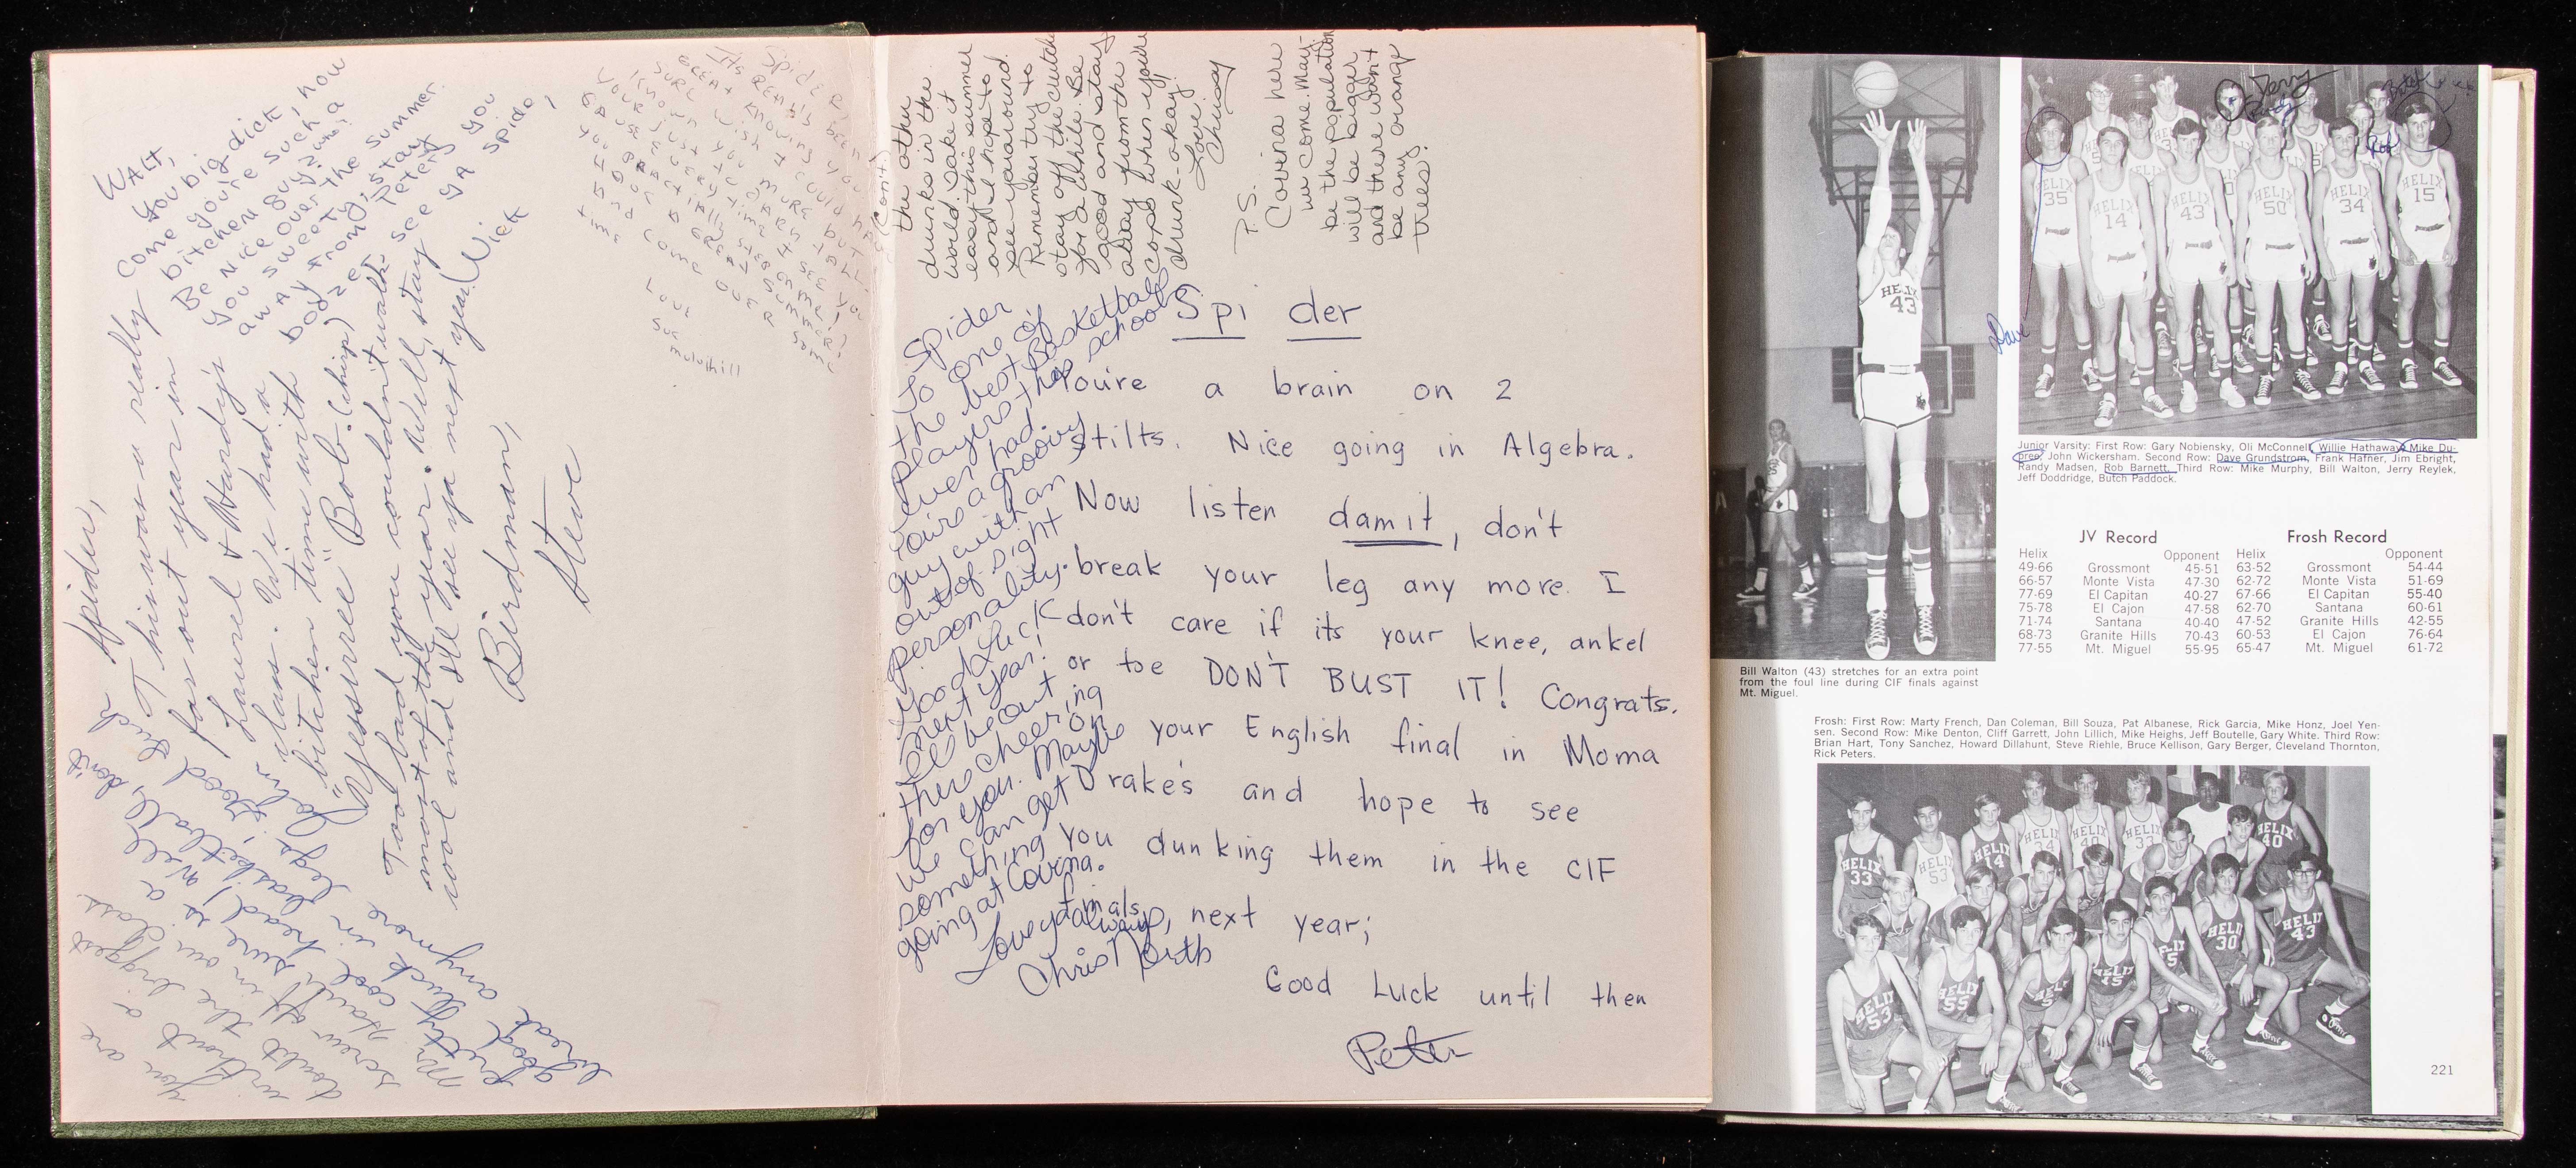 WALT,
Come you big dick, how
you're such a
bitchen guy? (wno?)
Be nice over the summer.
you sweety, stay
away from Peters
booze.
see ya spido,
Nick
Spider,
Its REAlly BEEN
GREAT Knowing you
SURE wish I could HAVE
known you MORE but
YOUR Just to DARN TALL
Love
Sue
mulvihill
Spider,
This was a really
far out year in
Laurel & Hardy's
class. We had a
bitchen time with
"yessirree" Bob. (chirp)
Too bad you couldn't walk
most of the year. Well, stay
cool and I'll see ya next year
Birdman,
Steve
you are
without a
doubt the biggest
screw off in our class
(cont.)
the other
drunks in the
world. Take it
easy this summer
and I hope to
see you around.
Remember try to
stay off the crutches
for a while. Be
good and stay
away from the
cops when you're
drunk-okay!
Love,
Chrissy
P.S.
Covina here
we come. May-
be the population
will be bigger
and there won't
be any orange
trees!
To Spider
to one of
the best Basketball
players the school
ever had.
You're a groovy
guy with an
out of sight
personality.
Good Luck
next year!
I'll be out
there cheering
for you. Maybe
we can get
something
going at Covina.
Love ya always,
Chris North
Spider
You're a brain on 2
stilts. Nice going in Algebra.
Now listen damit, don't
break your leg any more. I
don't care if its your knee, ankel
or toe DON'T BUST IT! Congrats.
on your English final in Moma
Drake's and hope to see
you dunking them in the CIF
finals, next year;
Good Luck until then
Peter
HELIX
43
Bill Walton (43) stretches for an extra point
from the foul line during CIF finals against
Mt. Miguel.
Dave
Jerry
Randy
Butch
Rob
HELIX
35
HELIX
14
HELIX
43
HELIX
50
HELIX
34
HELIX
15
Junior Varsity: First Row: Gary Nobiensky, Oli McConnell, Willie Hathaway, Mike Du-
pree, John Wickersham. Second Row: Dave Grundstrom, Frank Hafner, Jim Ebright,
Randy Madsen, Rob Barnett. Third Row: Mike Murphy, Bill Walton, Jerry Reylek,
Jeff Doddridge, Butch Paddock.
JV Record
Helix Opponent
49-66 Grossmont 45-51
66-57 Monte Vista 47-30
77-69 El Capitan 40-27
75-78 El Cajon 47-58
71-74 Santana 40-40
68-73 Granite Hills 70-43
77-55 Mt. Miguel 55-95
Frosh Record
Helix Opponent
63-52 Grossmont 54-44
62-72 Monte Vista 51-69
67-66 El Capitan 55-40
62-70 Santana 60-61
47-52 Granite Hills 42-55
60-53 El Cajon 76-64
65-47 Mt. Miguel 61-72
Frosh: First Row: Marty French, Dan Coleman, Bill Souza, Pat Albanese, Rick Garcia, Mike Honz, Joel Yen-
sen. Second Row: Mike Denton, Cliff Garrett, John Lillich, Mike Heighs, Jeff Boutelle, Gary White. Third Row:
Brian Hart, Tony Sanchez, Howard Dillahunt, Steve Riehle, Bruce Kellison, Gary Berger, Cleveland Thornton,
Rick Peters.
HELIX
33
HELIX
53
HELIX
14
HELIX
34
HELIX
40
HELIX
33
HELIX
40
HELIX
53
HELIX
55
HELIX
HELIX
45
HELIX
HELIX
30
HELIX
43
221